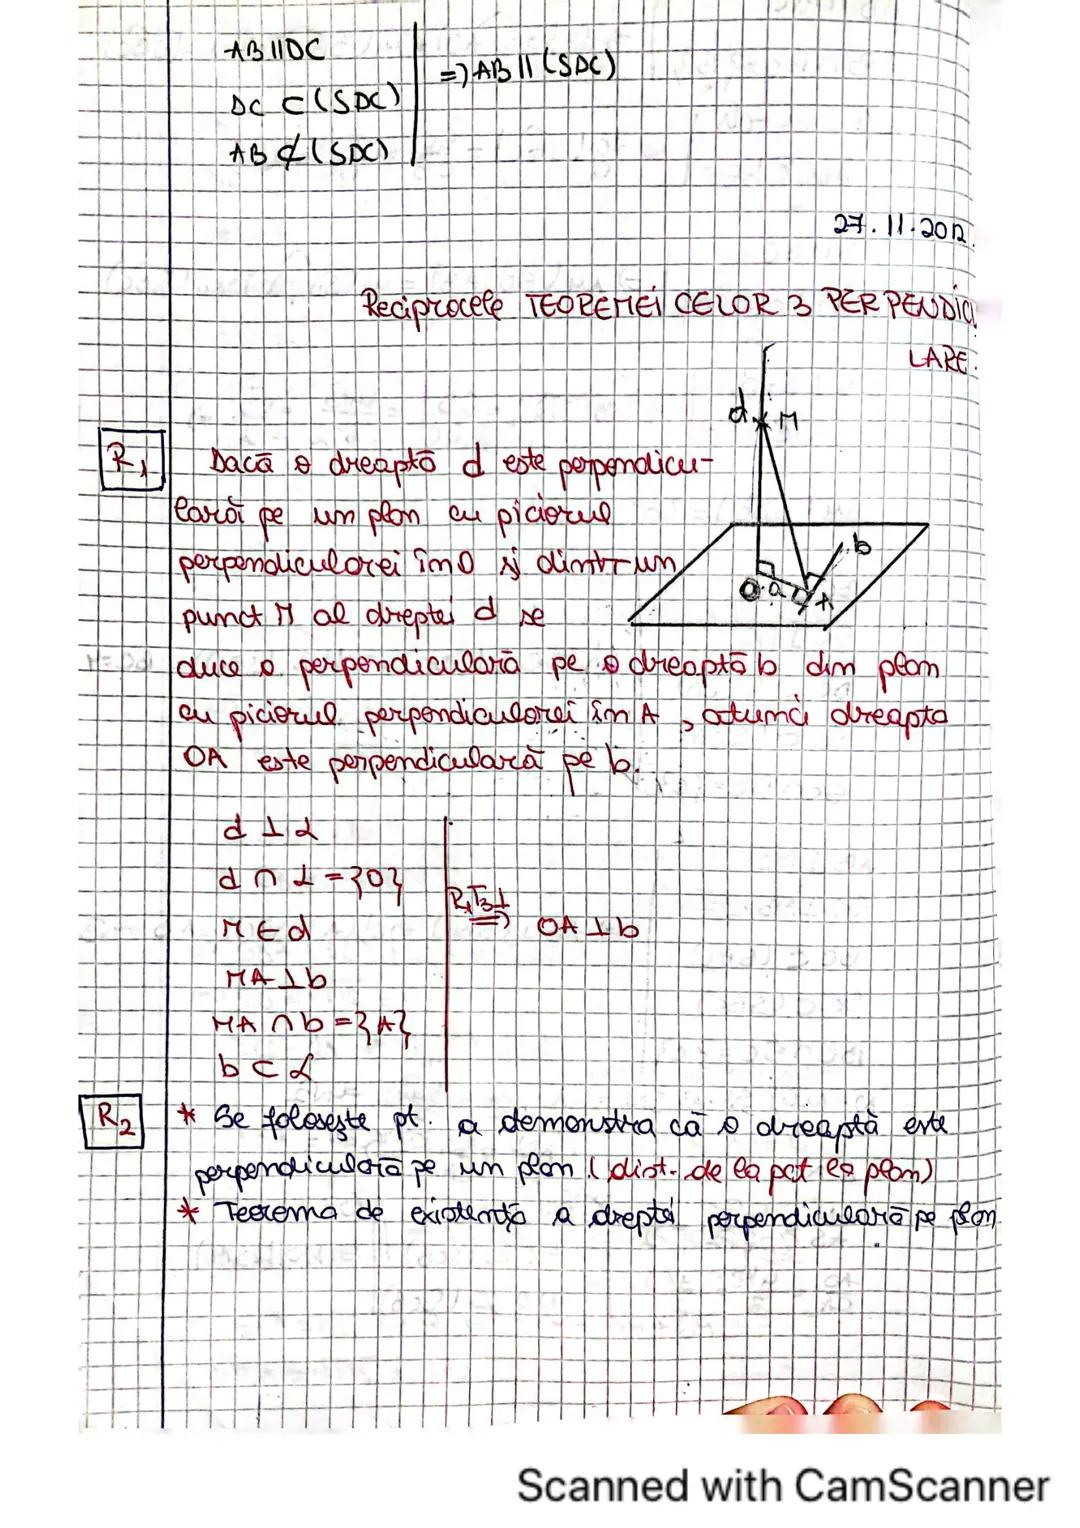 AB || DC
DC ⊂ (SDC)
AB ⊄ (SDC)
=> AB || (SDC)
27.11.2012.
Reciprocele TEOREMEI CELOR 3 PERPENDICU
LARE.
d M
b
O a A
R1
Dacă o dreaptă d este perpendicu-
lară pe un plan cu piciorul
perpendicularei în O și dintr-un
punct M al dreptei d se
duce o perpendiculară pe o dreaptă b din plan
cu piciorul perpendicularei în A, atunci dreapta
OA este perpendiculară pe b.
d ⊥ α
d ∩ α = {O}
M ∈ d
MA ⊥ b
MA ∩ b = {A}
b ⊂ α
R1T3⊥ => OA ⊥ b
R2
* Se folosește pt. a demonstra că o dreaptă este
perpendiculară pe un plan (dist. de la pct la plan)
* Teorema de existență a dreptei perpendiculară pe plan
Scanned with CamScanner